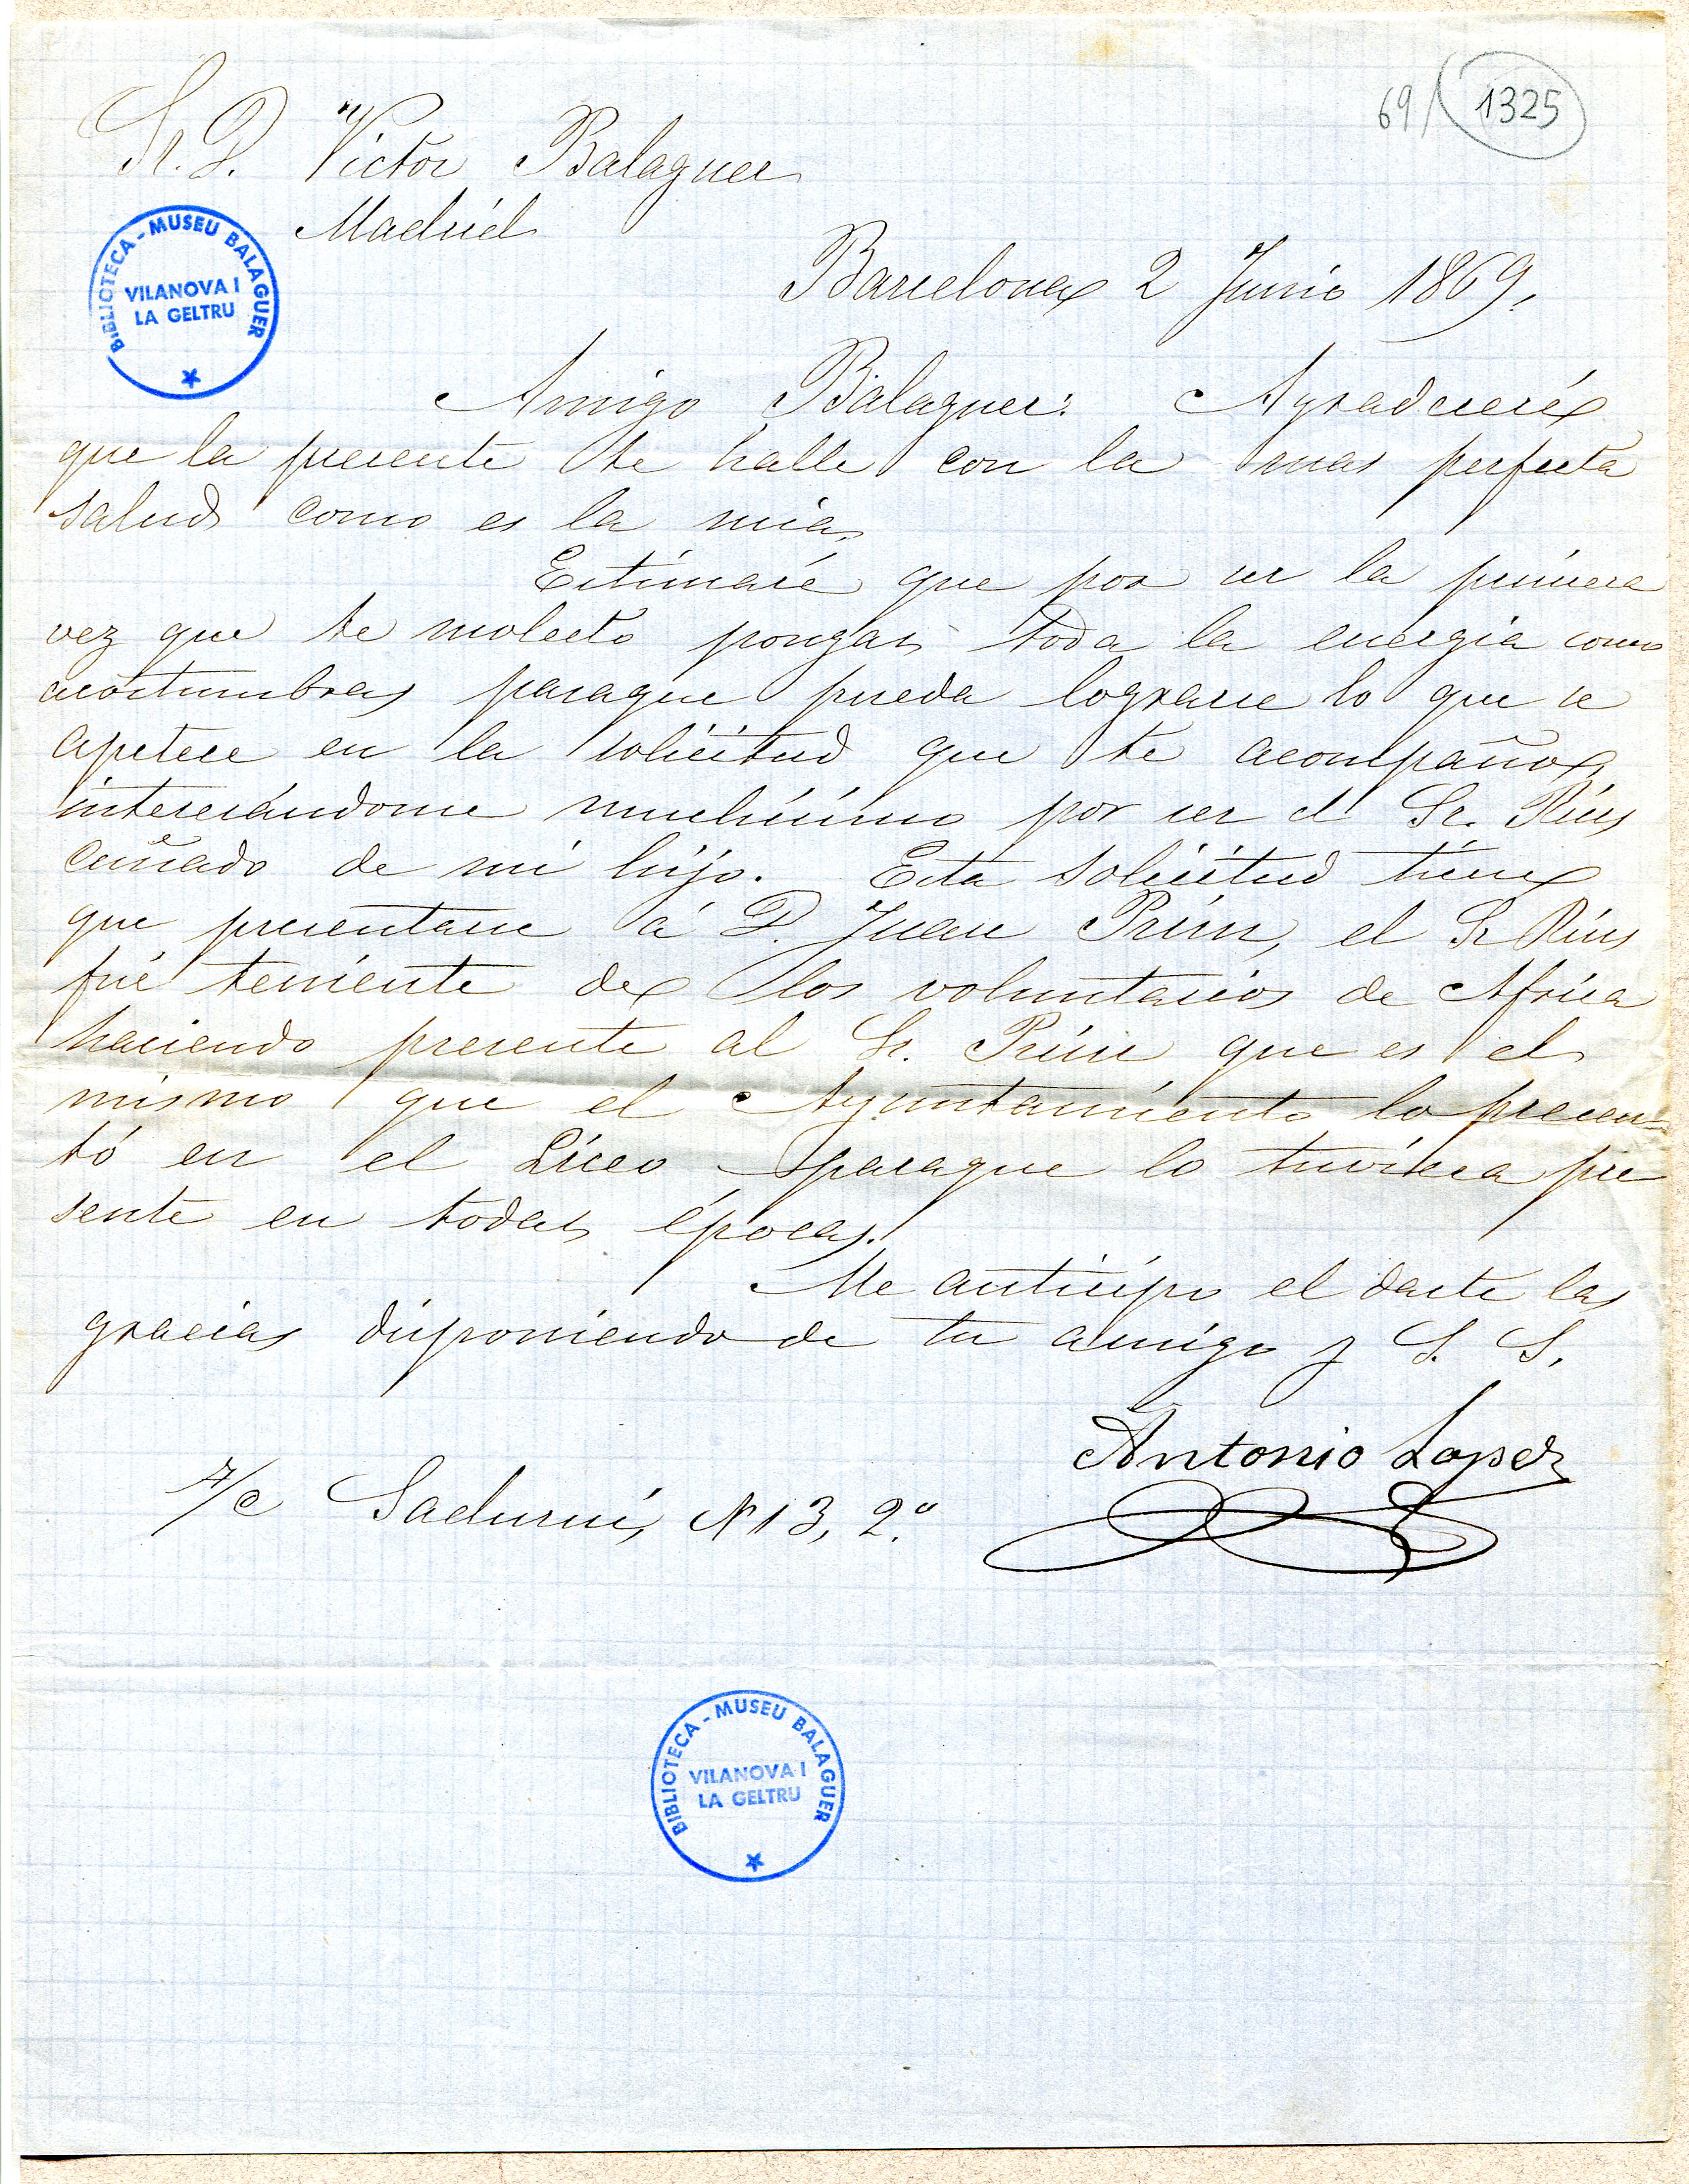 69/ 1325
Sr. D. Victor Balaguer
Madrid
BIBLIOTECA - MUSEU BALAGUER
VILANOVA I
LA GELTRU
Barcelona 2 Junio 1869.
Amigo Balaguer: Agradeceré
que la presente te halle con la mas perfecta
salud como es la mia.
Estimaré que por ser la primera
vez que te molesto pongas toda la energia como
acostumbras paraque pueda lograrse lo que se
apetece en la solicitud que te acompaño,
interesándome muchísimo por ser el Sr. Rius
cuñado de mi hijo. Esta solicitud tiene
que presentarse á D. Juan Prim, el Sr Rius
fué teniente de los voluntarios de Africa
haciendo presente al Sr. Prim que es el
mismo que el Ayuntamiento lo presen-
tó en el Liceo paraque lo tuviera pre
sente en todas épocas.
Me anticipo el darte las
gracias disponiendo de tu amigo y S. S.
Antonio Lopez
S/c Sadurní, N 13, 2.º
BIBLIOTECA - MUSEU BALAGUER
VILANOVA I
LA GELTRU